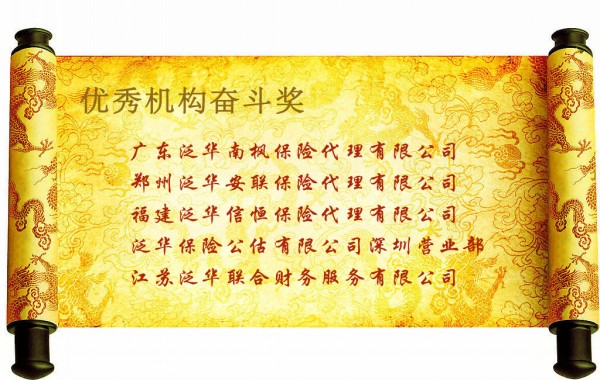 优秀机构奋斗奖
广东泛华南枫保险代理有限公司
郑州泛华安联保险代理有限公司
福建泛华信恒保险代理有限公司
泛华保险公估有限公司深圳营业部
江苏泛华联合财务服务有限公司